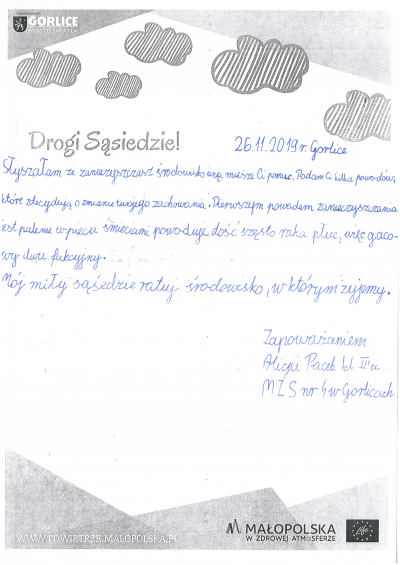 GORLICE
MIASTO ŚWIATŁA
Drogi Sąsiedzie!
26.11.2019 r. Gorlice
Słyszałam że zanieczyszczasz środowisko więc muszę Ci pomóc. Podam Ci kilka powodów,
które zdecydują o zmianie twojego zachowania. Pierwszym powodem zanieczyszczania
jest palenie w piecu śmieciami powoduje dość często raka płuc, więc
wy
Mój miły sąsiedzie ratuj środowisko, w którym żyjemy.
Zapoważaniem
Alicja Pacek kl II a
MZS nr 4 w Gorlicach
WWW.POWIETRZE.MALOPOLSKA.PL
MAŁOPOLSKA
W ZDROWEJ ATMOSFERZE
Life